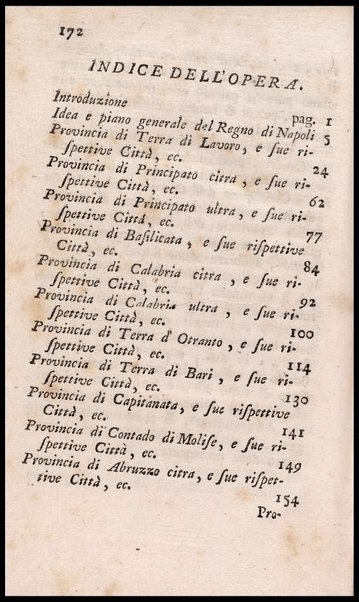 172
INDICE DELL'OPERA.
Introduzione pag. 1
Idea e piano generale del Regno di Napoli 5
Provincia di Terra di Lavoro, e sue ri-
spettive Città, ec. 24
Provincia di Principato citra, e sue ri-
spettive Città, ec. 62
Provincia di Principato ultra, e sue ri-
spettive Città, ec. 77
Provincia di Basilicata, e sue rispettive
Città, ec. 84
Provincia di Calabria citra, e sue ri-
spettive Città, ec. 92
Provincia di Calabria ultra, e sue ri-
spettive Città, ec. 100
Provincia di Terra d'Otranto, e sue ri-
spettive Città, ec. 114
Provincia di Terra di Bari, e sue ri-
spettive Città, ec. 130
Provincia di Capitanata, e sue rispettive
Città, ec. 141
Provincia di Contado di Molise, e sue ri-
spettive Città, ec. 149
Provincia di Abruzzo citra, e sue rispet-
tive Città, ec. 154
Pro-